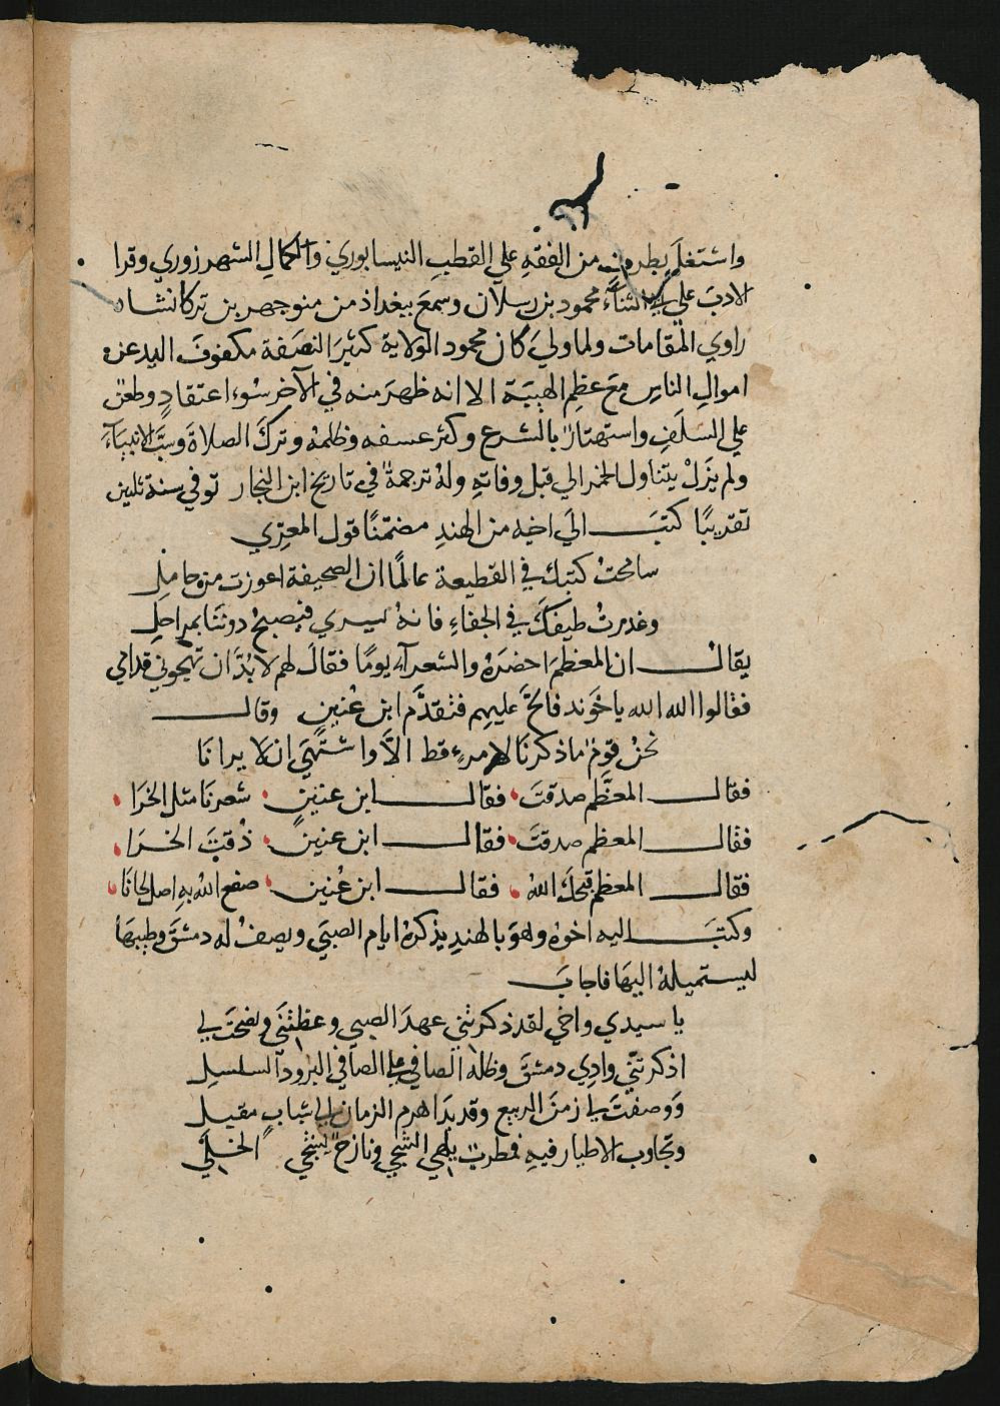 واشتغل بطرف من الفقه علي القطب النيسابوري والكمال الشهرزوري وقرا
الادب علي ابي الثناء محمود بن رسلان وسمع ببغداذ من منوجهر بن تركانشاه
راوي المقامات ولما ولي كان محمود الولاية كثير النصفة مكفوف اليد عن
اموالِ الناسِ معَ عظمِ الهيبَة الا انه ظهرَ منه في الآخر سُوء اعتقادٍ وطعنٌ
علي السَلَفِ واستهتارٌ بالشرع وكثر عسفه وظلمهُ وتركَ الصلاةَ وسَبَّ الانبيَاءَ
ولم يَزَلْ يتناول الخمر الي قبل وفاتهِ ولهُ ترجمةٌ في تاريخ ابن النجار توفي سنة ثلثين
تقديبًا كتبَ الَي اخيه من الهندِ مضمّنًا قول المعرّي
سامحتُ كتبك في القطيعة عالمًا ان الصحيفة اعوزت من حامِلِ
وعذرتُ طيفكَ في الجفاءِ فانهُ يسري فيصبحُ دوننَا بمراحِلِ
يقالُ ان المعظمَ احضرَهُ والشعرآء يومًا فقالَ لهم لا بُدَّ ان تهجوني قدامي
فقالوا الله الله ياخَوند فالحَّ عليهم فتقدَّم ابن عُنينٍ وقال
نحنُ قومٌ ما ذكرنَا لامرءٍ قط الاَّ واشتَهَي ان لا يرانَا
فقال المعظَّم صدقتَ فقال ابن عنينٍ شعرنَا مثل الخرَا
فقال المعظم صدقتَ فقال ابن عنين ذُقتَ الخرَا
فقال المعظم قبحكَ اللهُ فقال ابن عُنين صفع اللهُ بهِ اصل لحانَا
وكتبَ اليه اخوهُ وهوَ بالهندِ يذكرهُ ايام الصبَي ويصفُ له دمشقَ وطيبهَا
ليستميلهُ اليهَا فاجابَ
يا سيدي واخي لقد ذكرتَني عهدَ الصبي وعظتَني ونصحتَ لي
اذكرتَني وادِي دمشقَ وظله الصافي علي الصافي البَرود السلسلِ
وَوصفتَ لي زمنَ الربيع وقد بدَا هرم الزمان الي شبابٍ مقبلِ
وتجاوب الاطيار فيهِ فمطربٌ يلهي الشجي ونازحٌ يُشجي الخلي